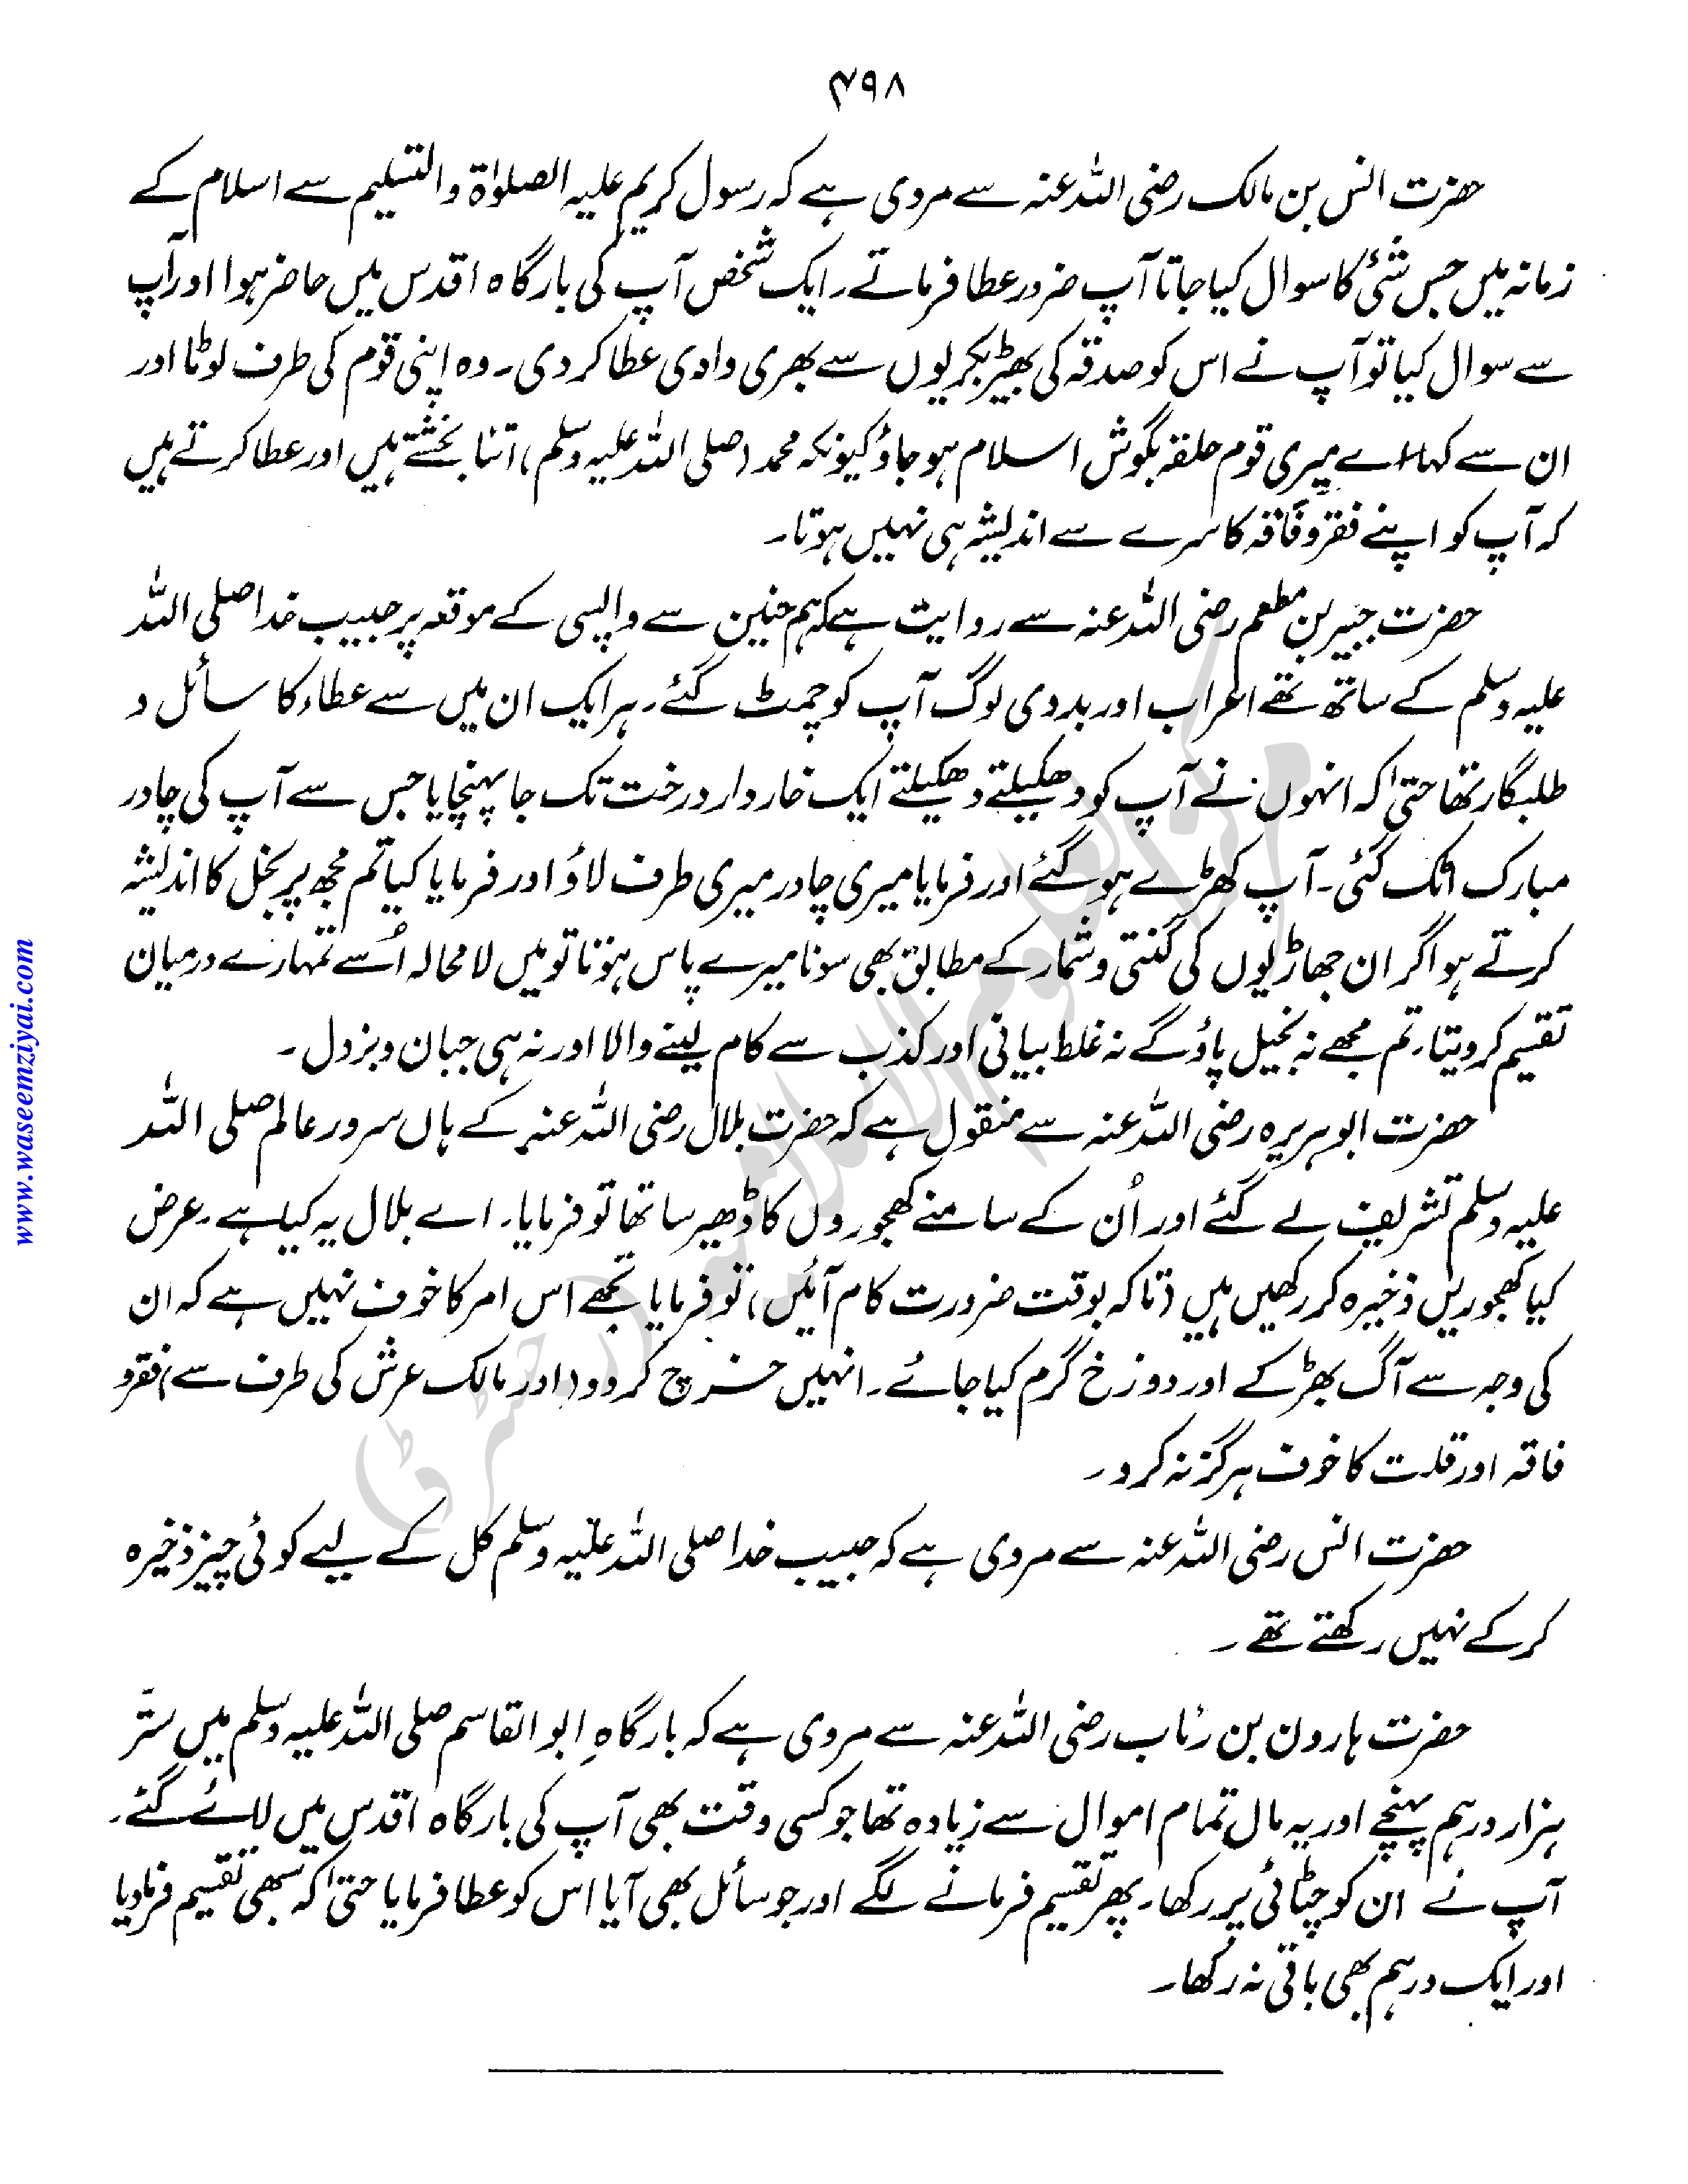 ۴۹۸
حضرت انس بن مالک رضی اللہ عنہ سے مروی ہے کہ رسول کریم علیہ الصلوٰۃ والتسلیم سے اسلام کے
زمانہ میں جس شئی کا سوال کیا جاتا آپ ضرور عطا فرماتے۔ ایک شخص آپ کی بارگاہ اقدس میں حاضر ہوا اور آپ
سے سوال کیا تو آپ نے اس کو صدقہ کی بھیڑ بکریوں سے بھری وادی عطا کر دی۔ وہ اپنی قوم کی طرف لوٹا اور
ان سے کہا اے میری قوم حلقہ بگوش اسلام ہو جاؤ کیونکہ محمد (صلی اللہ علیہ وسلم) اتنا بخشتے ہیں اور عطا کرتے ہیں
کہ آپ کو اپنے فقر و فاقہ کا سرے سے اندیشہ ہی نہیں ہوتا۔
حضرت جبیر بن مطعم رضی اللہ عنہ سے روایت ہے کہ ہم حنین سے واپسی کے موقعہ پر حبیب خدا صلی اللہ
علیہ وسلم کے ساتھ تھے اعراب اور بدوی لوگ آپ کو چمٹ گئے۔ ہر ایک ان میں سے عطاء کا سائل و
طلبگار تھا حتیٰ کہ انہوں نے آپ کو دھکیلتے دھکیلتے ایک خاردار درخت تک جا پہنچایا جس سے آپ کی چادر
مبارک اٹک گئی۔ آپ کھڑے ہو گئے اور فرمایا میری چادر میری طرف لاؤ اور فرمایا کیا تم مجھ پر بخل کا اندیشہ
کرتے ہو اگر ان جھاڑیوں کی گنتی و شمار کے مطابق بھی سونا میرے پاس ہوتا تو میں لا محالہ اُسے تمہارے درمیان
تقسیم کر دیتا۔ تم مجھے نہ بخیل پاؤ گے نہ غلط بیانی اور کذب سے کام لینے والا اور نہ ہی جبان و بزدل۔
حضرت ابو ہریرہ رضی اللہ عنہ سے منقول ہے کہ حضرت بلال رضی اللہ عنہ کے ہاں سرور عالم صلی اللہ
علیہ وسلم تشریف لے گئے اور اُن کے سامنے کھجوروں کا ڈھیر سا تھا تو فرمایا۔ اے بلال یہ کیا ہے۔ عرض
کیا کھجوریں ذخیرہ کر رکھیں ہیں (تاکہ بوقت ضرورت کام آئیں) تو فرمایا تجھے اس امر کا خوف نہیں ہے کہ ان
کی وجہ سے آگ بھڑکے اور دوزخ گرم کیا جائے۔ انہیں خرچ کر دو (اور مالک عرش کی طرف سے) فقر و
فاقہ اور قلت کا خوف ہرگز نہ کرو۔
حضرت انس رضی اللہ عنہ سے مروی ہے کہ حبیب خدا صلی اللہ علیہ وسلم کل کے لیے کوئی چیز ذخیرہ
کر کے نہیں رکھتے تھے۔
حضرت ہارون بن رئاب رضی اللہ عنہ سے مروی ہے کہ بارگاہِ ابو القاسم صلی اللہ علیہ وسلم میں ستّر
ہزار درہم پہنچے اور یہ مال تمام اموال سے زیادہ تھا جو کسی وقت بھی آپ کی بارگاہ اقدس میں لائے گئے۔
آپ نے ان کو چٹائی پر رکھا۔ پھر تقسیم فرمانے لگے اور جو سائل بھی آیا اس کو عطا فرمایا حتیٰ کہ سبھی تقسیم فرما دیا
اور ایک درہم بھی باقی نہ رکھا۔
www.waseemziyai.com